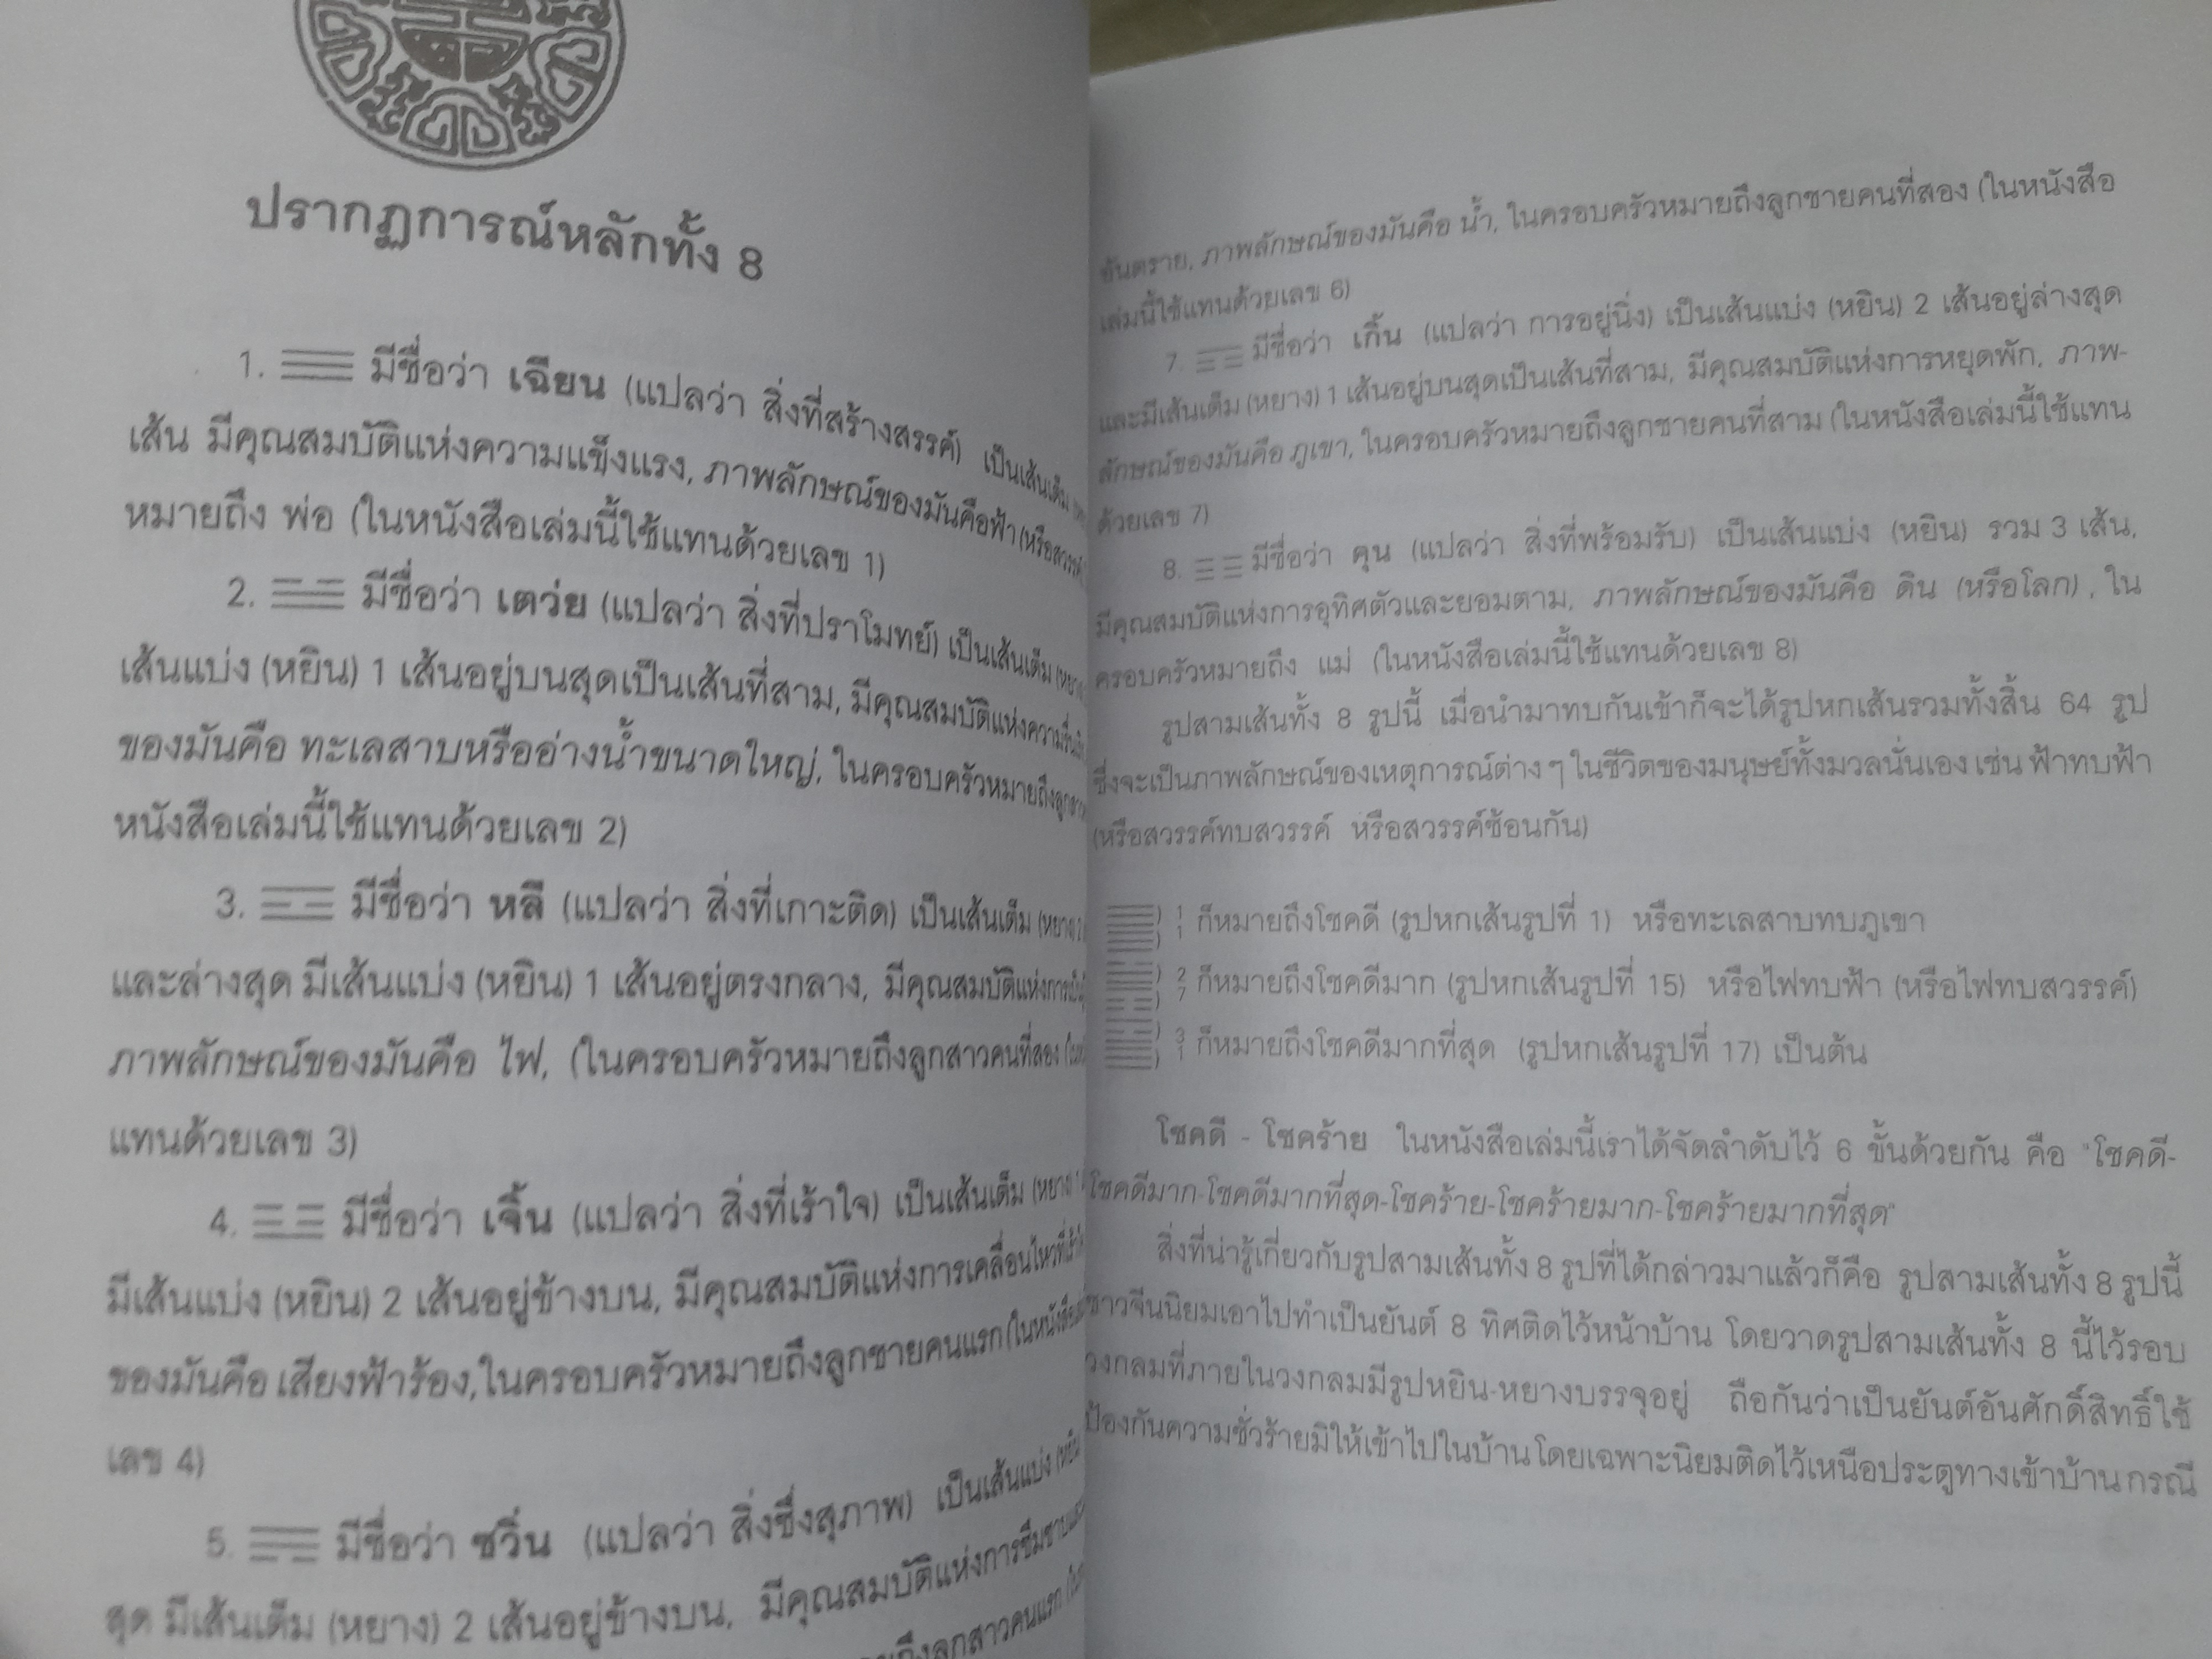 ปรากฏการณ์หลักทั้ง 8
1. ☰ มีชื่อว่า เฉียน (แปลว่า สิ่งที่สร้างสรรค์) เป็นเส้นเต็ม
เส้น มีคุณสมบัติแห่งความแข็งแรง, ภาพลักษณ์ของมันคือฟ้า (หรือสวรรค์
หมายถึง พ่อ (ในหนังสือเล่มนี้ใช้แทนด้วยเลข 1)
2. ☱ มีชื่อว่า เตว่ย (แปลว่า สิ่งที่ปราโมทย์) เป็นเส้นเต็ม (หยาง
เส้นแบ่ง (หยิน) 1 เส้นอยู่บนสุดเป็นเส้นที่สาม, มีคุณสมบัติแห่งความ
ของมันคือ ทะเลสาบหรืออ่างน้ำขนาดใหญ่, ในครอบครัวหมายถึง
หนังสือเล่มนี้ใช้แทนด้วยเลข 2)
3. ☲ มีชื่อว่า หลี (แปลว่า สิ่งที่เกาะติด) เป็นเส้นเต็ม (หยาง) 2
และล่างสุด มีเส้นแบ่ง (หยิน) 1 เส้นอยู่ตรงกลาง, มีคุณสมบัติแห่งการ
ภาพลักษณ์ของมันคือ ไฟ, (ในครอบครัวหมายถึงลูกสาวคนที่สอง
แทนด้วยเลข 3)
4. ☳ มีชื่อว่า เจิ้น (แปลว่า สิ่งที่เร้าใจ) เป็นเส้นเต็ม (หยาง) 1
มีเส้นแบ่ง (หยิน) 2 เส้นอยู่ข้างบน, มีคุณสมบัติแห่งการเคลื่อนไหวที่
ของมันคือ เสียงฟ้าร้อง,ในครอบครัวหมายถึงลูกชายคนแรก (ในหนังสือ
เลข 4)
5. ☴ มีชื่อว่า ชวิ่น (แปลว่า สิ่งซึ่งสุภาพ) เป็นเส้นแบ่ง (หยิน
สุด มีเส้นเต็ม (หยาง) 2 เส้นอยู่ข้างบน, มีคุณสมบัติแห่งการซึมซาบ
ถึงลูกสาวคนแรก
อันตราย, ภาพลักษณ์ของมันคือ น้ำ, ในครอบครัวหมายถึงลูกชายคนที่สอง (ในหนังสือ
เล่มนี้ใช้แทนด้วยเลข 6)
7. ☶ มีชื่อว่า เกิ้น (แปลว่า การอยู่นิ่ง) เป็นเส้นแบ่ง (หยิน) 2 เส้นอยู่ล่างสุด
และมีเส้นเต็ม (หยาง) 1 เส้นอยู่บนสุดเป็นเส้นที่สาม, มีคุณสมบัติแห่งการหยุดพัก, ภาพ-
ลักษณ์ของมันคือ ภูเขา, ในครอบครัวหมายถึงลูกชายคนที่สาม (ในหนังสือเล่มนี้ใช้แทน
ด้วยเลข 7)
8. ☷ มีชื่อว่า คุน (แปลว่า สิ่งที่พร้อมรับ) เป็นเส้นแบ่ง (หยิน) รวม 3 เส้น,
มีคุณสมบัติแห่งการอุทิศตัวและยอมตาม, ภาพลักษณ์ของมันคือ ดิน (หรือโลก), ใน
ครอบครัวหมายถึง แม่ (ในหนังสือเล่มนี้ใช้แทนด้วยเลข 8)
รูปสามเส้นทั้ง 8 รูปนี้ เมื่อนำมาทบกันเข้าก็จะได้รูปหกเส้นรวมทั้งสิ้น 64 รูป
ซึ่งจะเป็นภาพลักษณ์ของเหตุการณ์ต่างๆ ในชีวิตของมนุษย์ทั้งมวลนั่นเอง เช่น ฟ้าทบฟ้า
(หรือสวรรค์ทบสวรรค์ หรือสวรรค์ซ้อนกัน)
1 1 ก็หมายถึงโชคดี (รูปหกเส้นรูปที่ 1) หรือทะเลสาบทบภูเขา
2 7 ก็หมายถึงโชคดีมาก (รูปหกเส้นรูปที่ 15) หรือไฟทบฟ้า (หรือไฟทบสวรรค์)
3 1 ก็หมายถึงโชคดีมากที่สุด (รูปหกเส้นรูปที่ 17) เป็นต้น
โชคดี - โชคร้าย ในหนังสือเล่มนี้เราได้จัดลำดับไว้ 6 ขั้นด้วยกัน คือ "โชคดี-
โชคดีมาก-โชคดีมากที่สุด-โชคร้าย-โชคร้ายมาก-โชคร้ายมากที่สุด"
สิ่งที่น่ารู้เกี่ยวกับรูปสามเส้นทั้ง 8 รูปที่ได้กล่าวมาแล้วก็คือ รูปสามเส้นทั้ง 8 รูปนี้
ชาวจีนนิยมเอาไปทำเป็นยันต์ 8 ทิศติดไว้หน้าบ้าน โดยวาดรูปสามเส้นทั้ง 8 นี้ไว้รอบ
วงกลมที่ภายในวงกลมมีรูปหยิน-หยางบรรจุอยู่ ถือกันว่าเป็นยันต์อันศักดิ์สิทธิ์ใช้
ป้องกันความชั่วร้ายมิให้เข้าไปในบ้าน โดยเฉพาะนิยมติดไว้เหนือประตูทางเข้าบ้าน กรณี